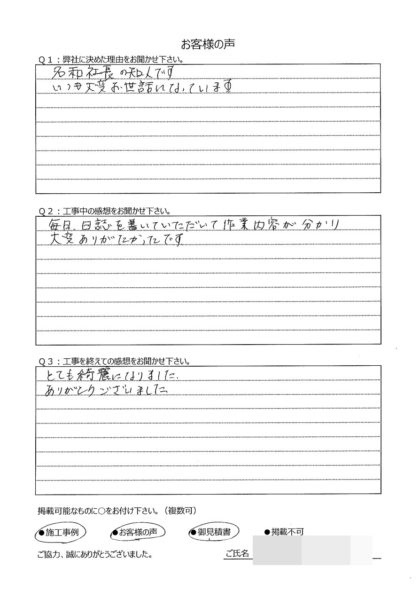 お客様の声
Q1：弊社に決めた理由をお聞かせ下さい。
名和社長の知人です
いつも大変お世話になっています
Q2：工事中の感想をお聞かせ下さい。
毎日、日誌を書いていただいて作業内容が分かり
大変ありがたかったです
Q3：工事を終えての感想をお聞かせ下さい。
とても綺麗になりました、
ありがとうございました
掲載可能なものに○をお付け下さい。（複数可）
●施工事例 ●お客様の声 ●御見積書 ●掲載不可
ご協力、誠にありがとうございました。 ご氏名